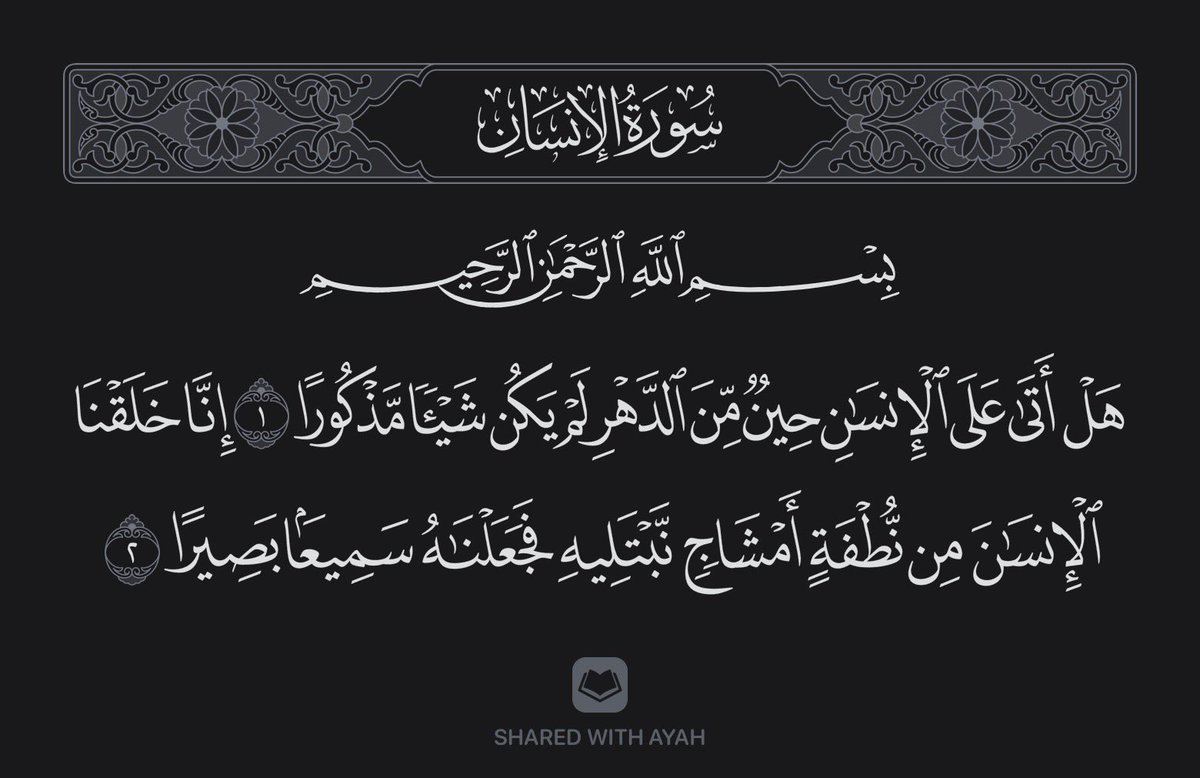 سُورَةُ الإِنسَانِ
بِسْمِ ٱللَّهِ ٱلرَّحْمَٰنِ ٱلرَّحِيمِ
هَلْ أَتَىٰ عَلَى ٱلْإِنسَٰنِ حِينٌ مِّنَ ٱلدَّهْرِ لَمْ يَكُن شَيْـًٔا مَّذْكُورًا ١ إِنَّا خَلَقْنَا
ٱلْإِنسَٰنَ مِن نُّطْفَةٍ أَمْشَاجٍ نَّبْتَلِيهِ فَجَعَلْنَٰهُ سَمِيعًۢا بَصِيرًا ٢
SHARED WITH AYAH